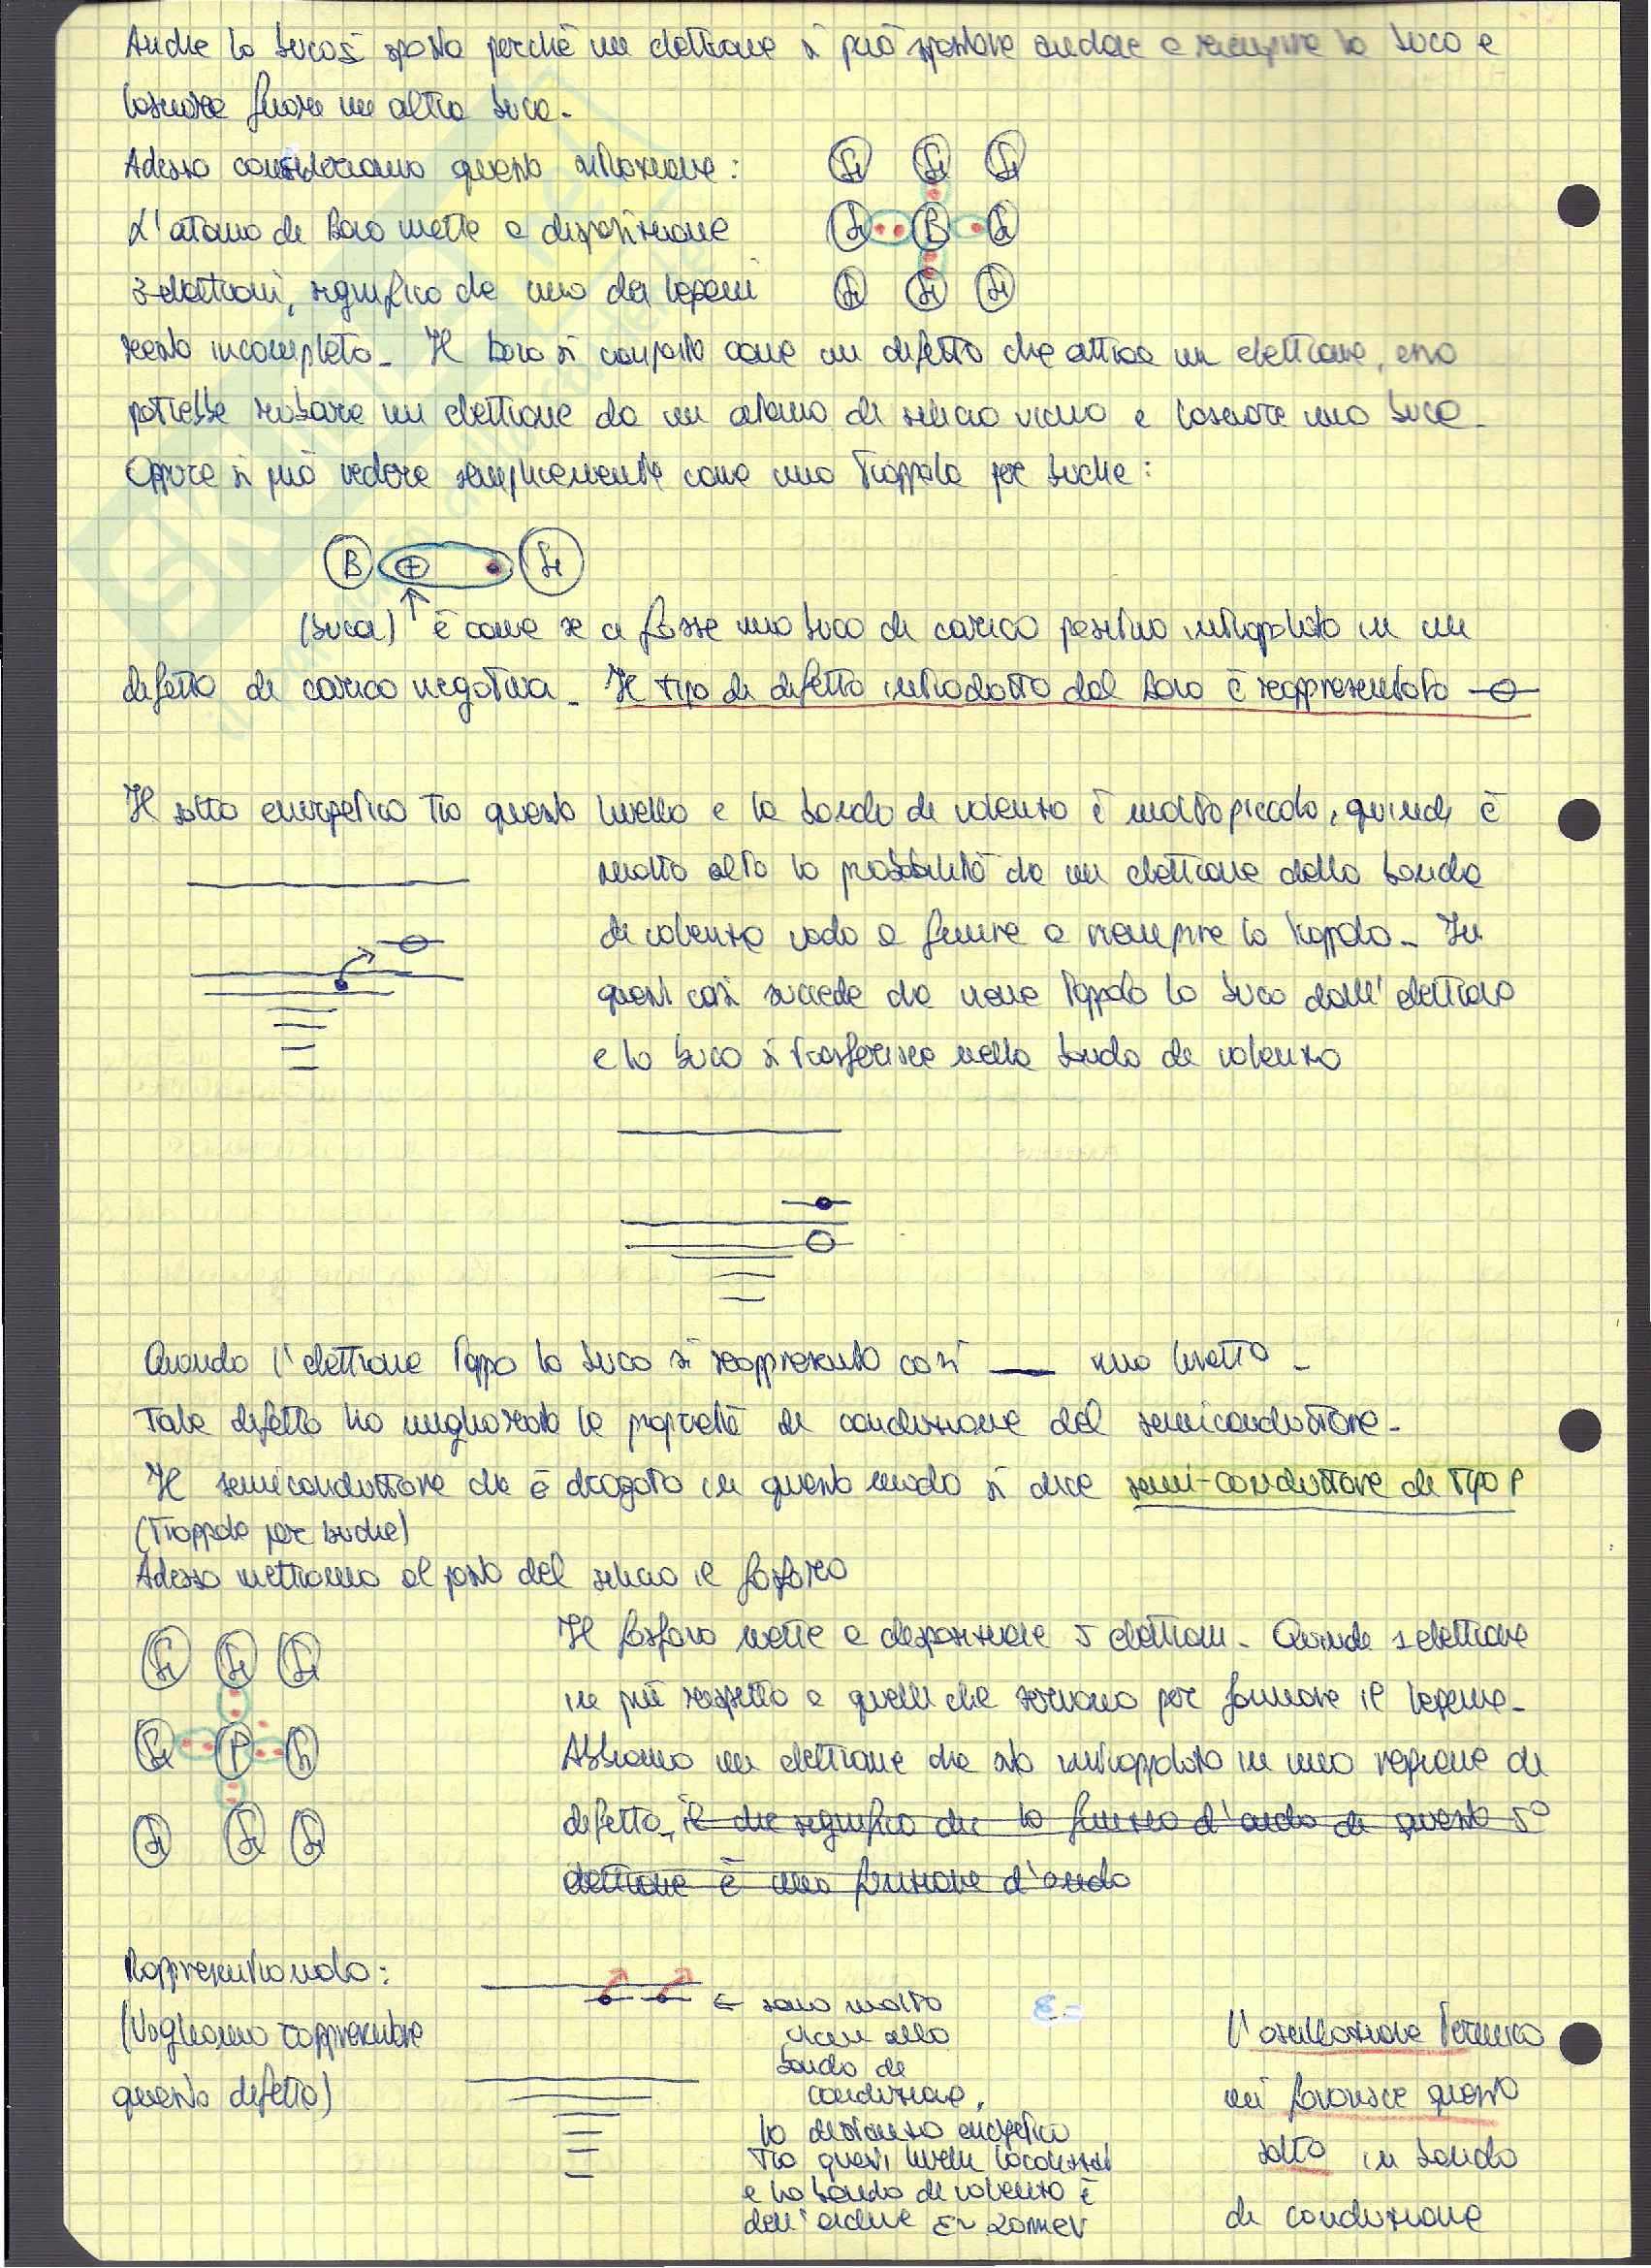 Anche la buca si sposta perchè un elettrone si può spostare andare a riempire la buca e
lasciare fuori un altra buca.
Adesso consideriamo questa situazione:
Si Si Si
L'atomo di Boro mette a disposizione
Si B Si
3 elettroni, significa che uno dei legami
Si Si Si
resta incompleto. Il boro si comporta come un difetto che attira un elettrone, esso
potrebbe rubare un elettrone da un atomo di silicio vicino e lasciare una buca.
Oppure si può vedere semplicemente come una trappola per buche:
B + Si
(buca) è come se ci fosse una buca di carica positiva intrappolata in un
difetto di carica negativa. Il tipo di difetto introdotto dal Boro è rappresentato
Il salto energetico tra questo livello e la banda di valenza è molto piccolo, quindi è
molto alta la probabilità che un elettrone della banda
di valenza vada a finire a riempire la trappola. In
questi casi succede che viene tappata la buca dall'elettrone
e la buca si trasferisce nella banda di valenza
Quando l'elettrone tappa la buca si rappresenta così una linetta.
Tale difetto ha migliorato le proprietà di conduzione del semiconduttore.
Il semiconduttore che è drogato in questo modo si dice semi-conduttore di tipo P
(Trappole per buche)
Adesso mettiamo al posto del silicio il fosforo
Si Si Si
Si P Si
Si Si Si
Il fosforo mette a disposizione 5 elettroni. Quindi 1 elettrone
in più rispetto a quelli che servono per formare il legame.
Abbiamo un elettrone che sta intrappolato in una regione di
difetto, il che significa che la funzione d'onda di questo 5°
elettrone è una funzione d'onda
Rappresentandolo:
(Vogliamo rappresentare
questo difetto)
← sono molto
vicini alla
banda di
conduzione,
la distanza energetica
tra questi livelli localizzati
e la banda di valenza è
dell'ordine ε~20meV
ε=
L'oscillazione termica
mi favorisce questo
salto in banda
di conduzione